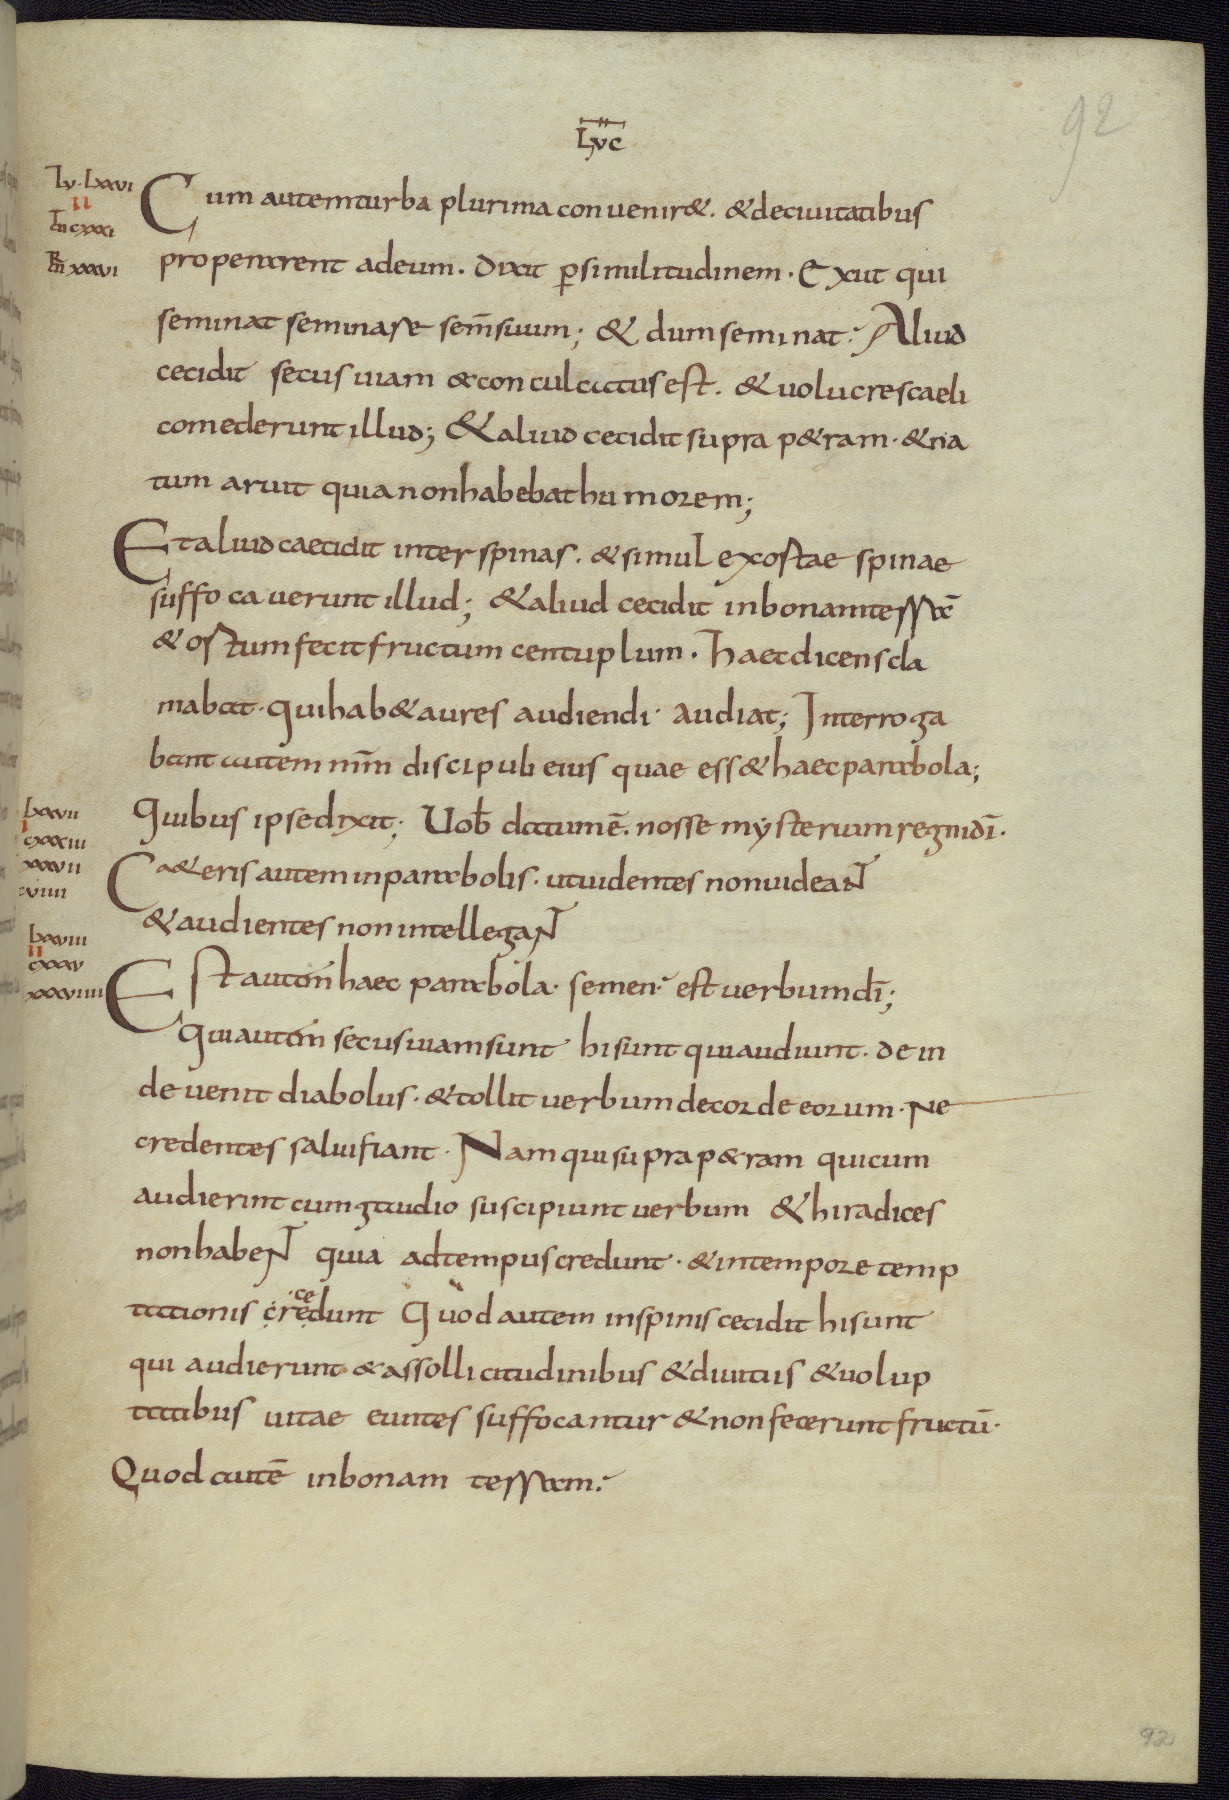 LVC
92
Lu·Lxxvi
ii
Mt cxxxi
Mr xxxvi
Cum autem turba plurima conuenir&. & deciuitatibus
properarent adeum. dixit p̄similitudinem. Exiit qui
seminat seminare sem̄ suum; & dum seminat· Aliud
cecidit secus uiam &conculcatus est. & uolucres caeli
comederunt illud; & aliud cecidit supra p&ram. & na
tum aruit quia non habebat humorem;
Et aliud caecidit inter spinas. & simul exostae spinae
suffocauerunt illud; & aliud cecidit inbonam terrā
& ostum fecit fructum centuplum. haec dicens cla
mabat. qui hab& aures audiendi· audiat; Interroga
bant autem eum discipuli eius quae ess& haec parabola;
Quibus ipse dixit; Uob̄ datum ē. nosse mysterium regni dī.
Lxxvii
i
cxxxiii
xxxvii
Caeteris autem inparabolis. utuidentes nonuideant
& audientes nonintellegant
Lxxviii
ii
cxxxv
xxxviiii
Est autem haec parabola. semen· est uerbum dī;
Qui autem secus uiam sunt hi sunt qui audiunt. dein
de uenit diabolus. & tollit uerbum decorde eorum. Ne
credentes salui fiant. Nam qui supra p&ram qui cum
audierint cum gaudio suscipiunt uerbum & hi radices
non habent quia adtempus credunt. & intempore temp
ce
tationis credunt Quod autem inspinis cecidit hi sunt
qui audierunt & assollicitudinibus & diuitiis & uolup
tatibus uitae euntes suffocantur & non fecerunt fructū.
Quod autē inbonam terram:
92